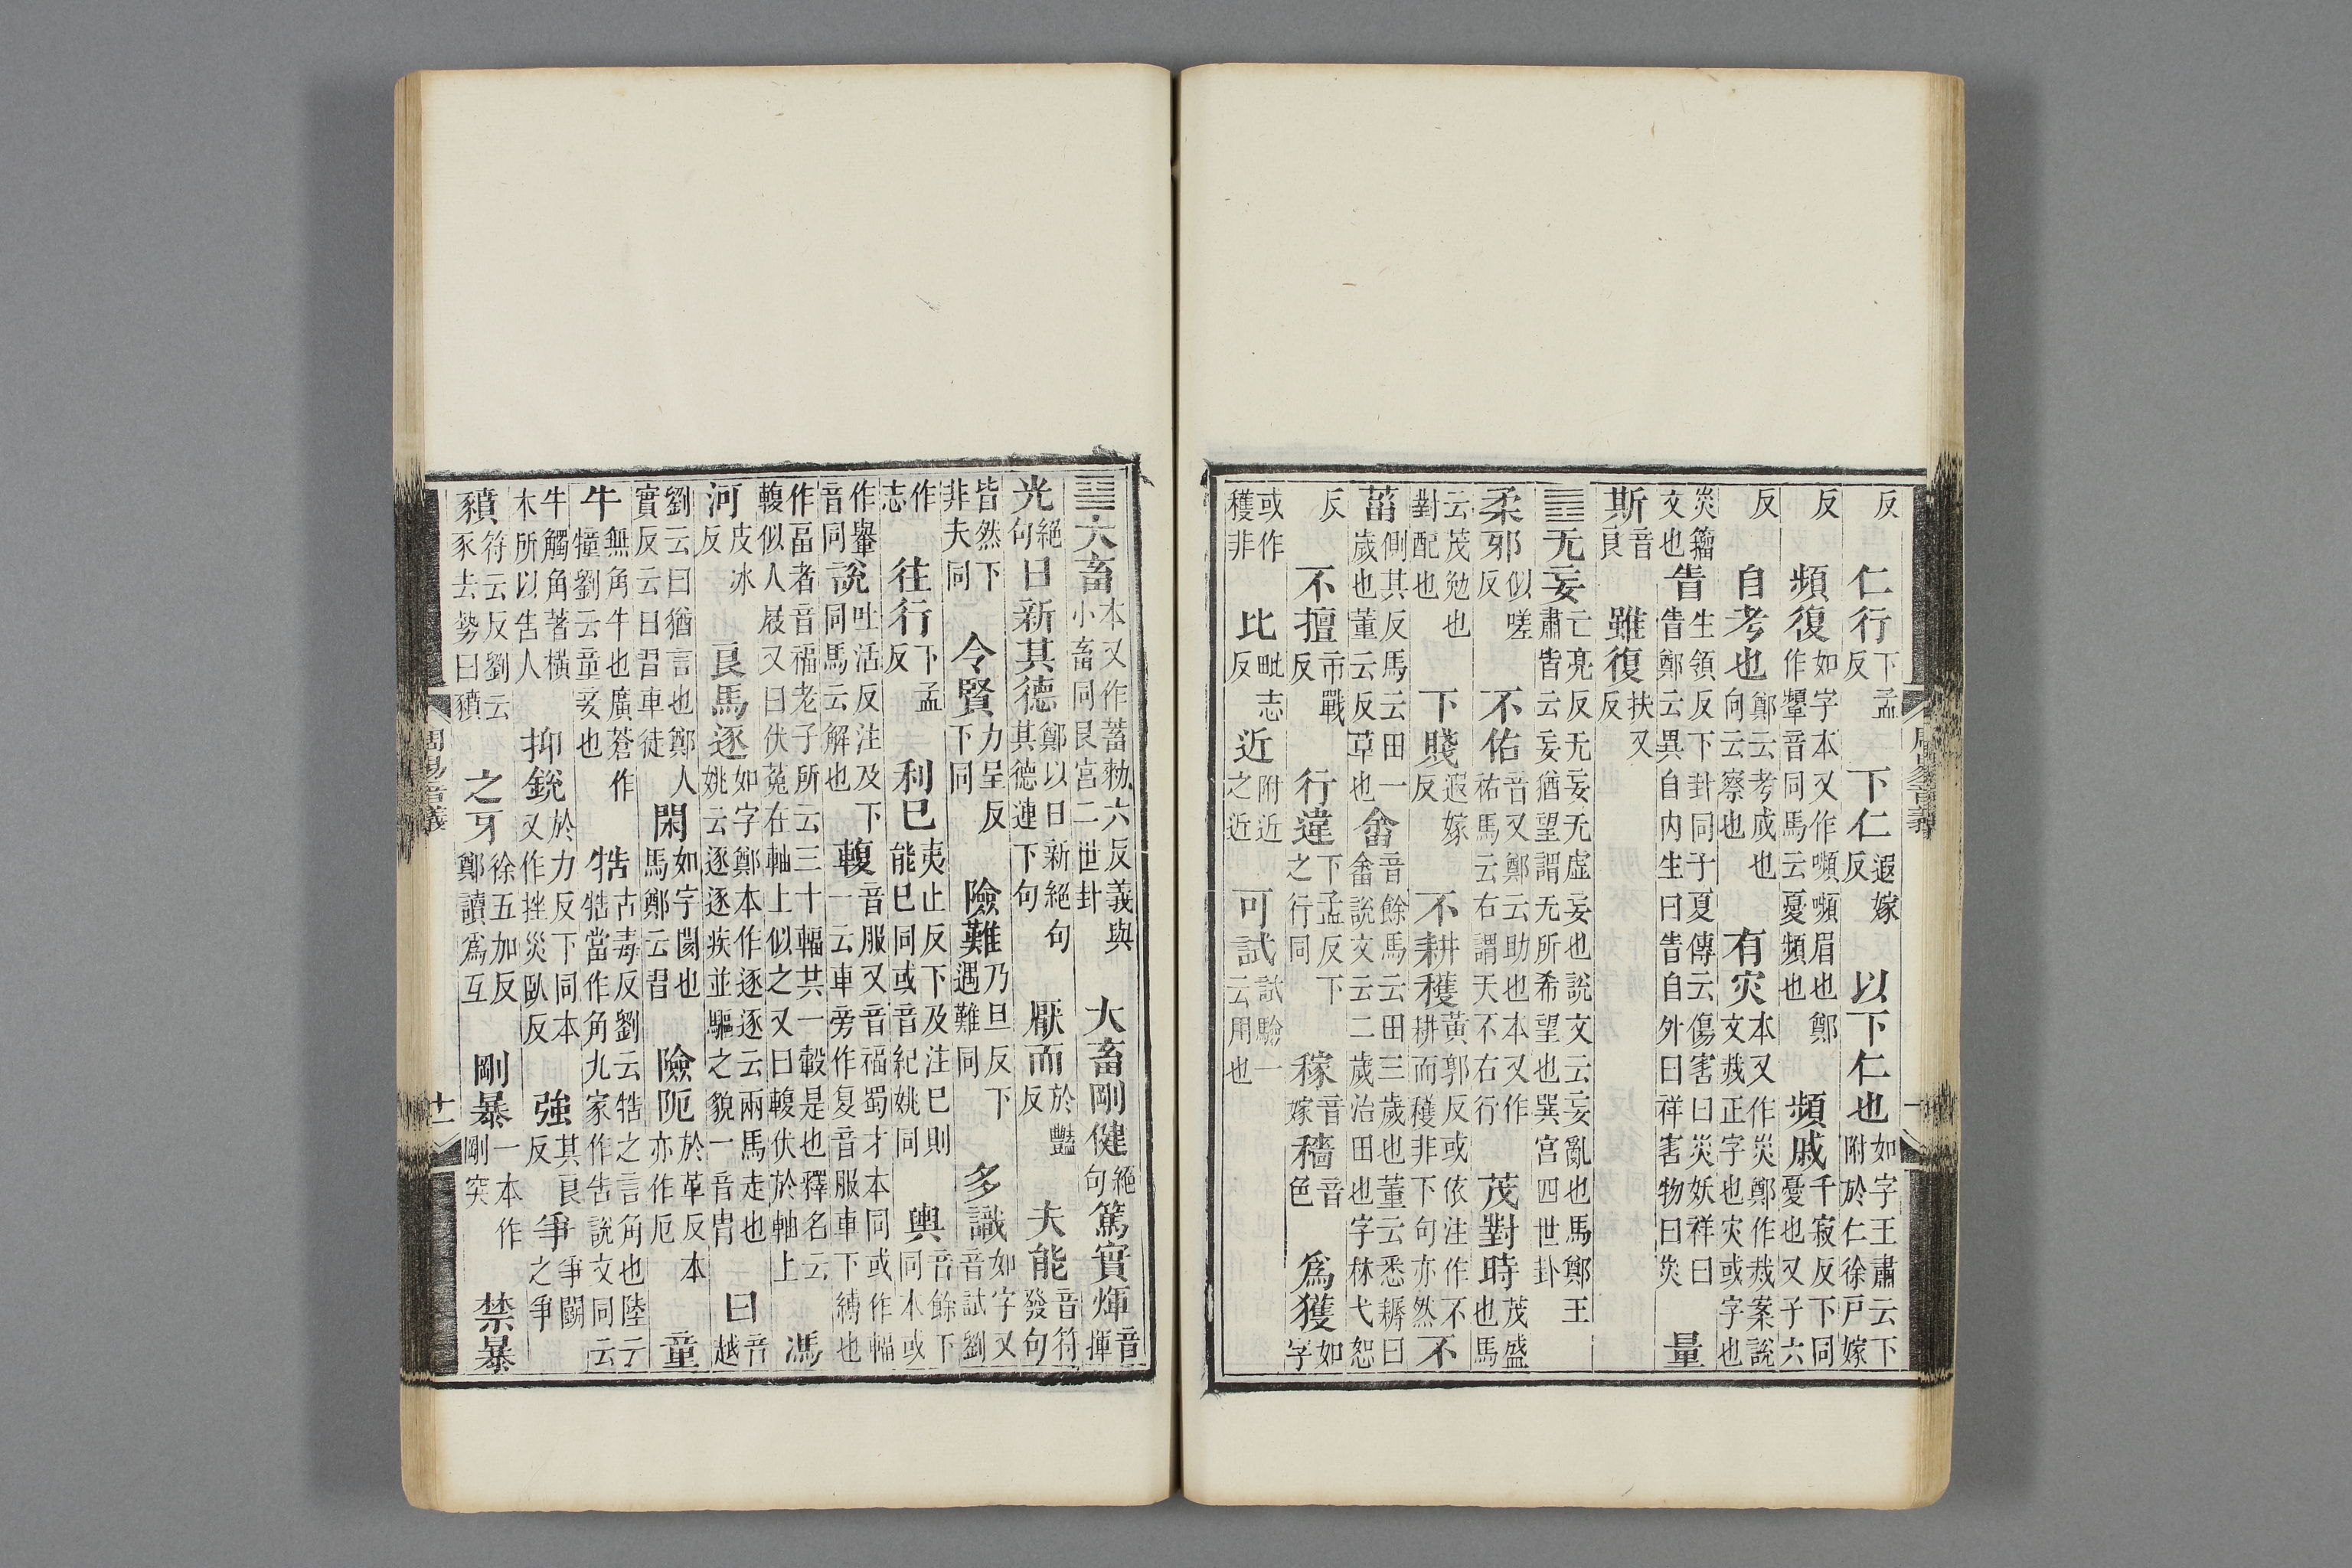 反仁行下孟反下仁遐嫁反以下仁也如字王肅云下附於仁徐戸嫁
反頻復如字本又作嚬嚬眉也鄭作顰音同馬云憂頻也頻戚千寂反下同憂也又子六
反自考也鄭云考成也向云察也有灾本又作災鄭作烖案說文烖正字也灾或字也
災籀文也眚生領反下卦同子夏傳云傷害曰災妖祥曰眚鄭云異自内生曰眚自外曰祥害物曰災量
斯音良雖復扶又反
䷘无妄亡亮反无妄无虚妄也說文云妄亂也馬鄭王肅皆云妄猶望謂无所希望也巽宮四世卦
柔邪似嗟反不佑音又鄭云助也本又作祐馬云右謂天不右行茂對時茂盛也馬
云茂勉也對配也下賤遐嫁反不耕穫黃郭反或依注作不耕而穫非下句亦然不
菑側其反馬云田一歲也董云反草也畬音餘馬云田三歲也董云悉耨曰畬說文云二歲治田也字林弋恕
反不擅市戰反行違下孟反下之行同稼音嫁穡音色爲獲如字
或作穫非比毗志反近附近之近可試試驗一云用也
周易音義
䷙大畜本又作蓄勑六反義與小畜同艮宮二世卦大畜剛健絕句篤實煇音揮
光絕句日新其德鄭以日新絕句其德連下句厭而於豔反夫能音符發句
皆然下非夫同令賢力呈反下同險難乃旦反下遇難同多識如字又音試劉
作志往行下孟反利已夷止反下及注已則能已同或音紀姚同輿音餘下同本或
作轝音同說吐活反注及下同馬云解也輹音服又音福蜀才本同或作輻一云車旁作复音服車下縛也
作畐者音福老子所云三十輻共一轂是也釋名云輹似人屐又曰伏菟在軸上似之又曰輹伏於軸上馮
河皮冰反良馬逐如字鄭本作逐逐云兩馬走也姚云逐逐疾並驅之貌一音胄曰音越
劉云曰猶言也鄭人實反云曰習車徒閑如字閡也馬鄭云習險阨於革反本亦作厄童
牛無角牛也廣蒼作犝劉云童妾也牿古毒反劉云牿之言角也陸云牿當作角九家作告說文同云
牛觸角著橫木所以告人抑銳於力反下同本又作挫災臥反強其良反爭爭鬭之爭
豶符云反劉云豕去勢曰豶之牙徐五加反鄭讀爲互剛暴一本作剛突禁暴
周易音義
十一